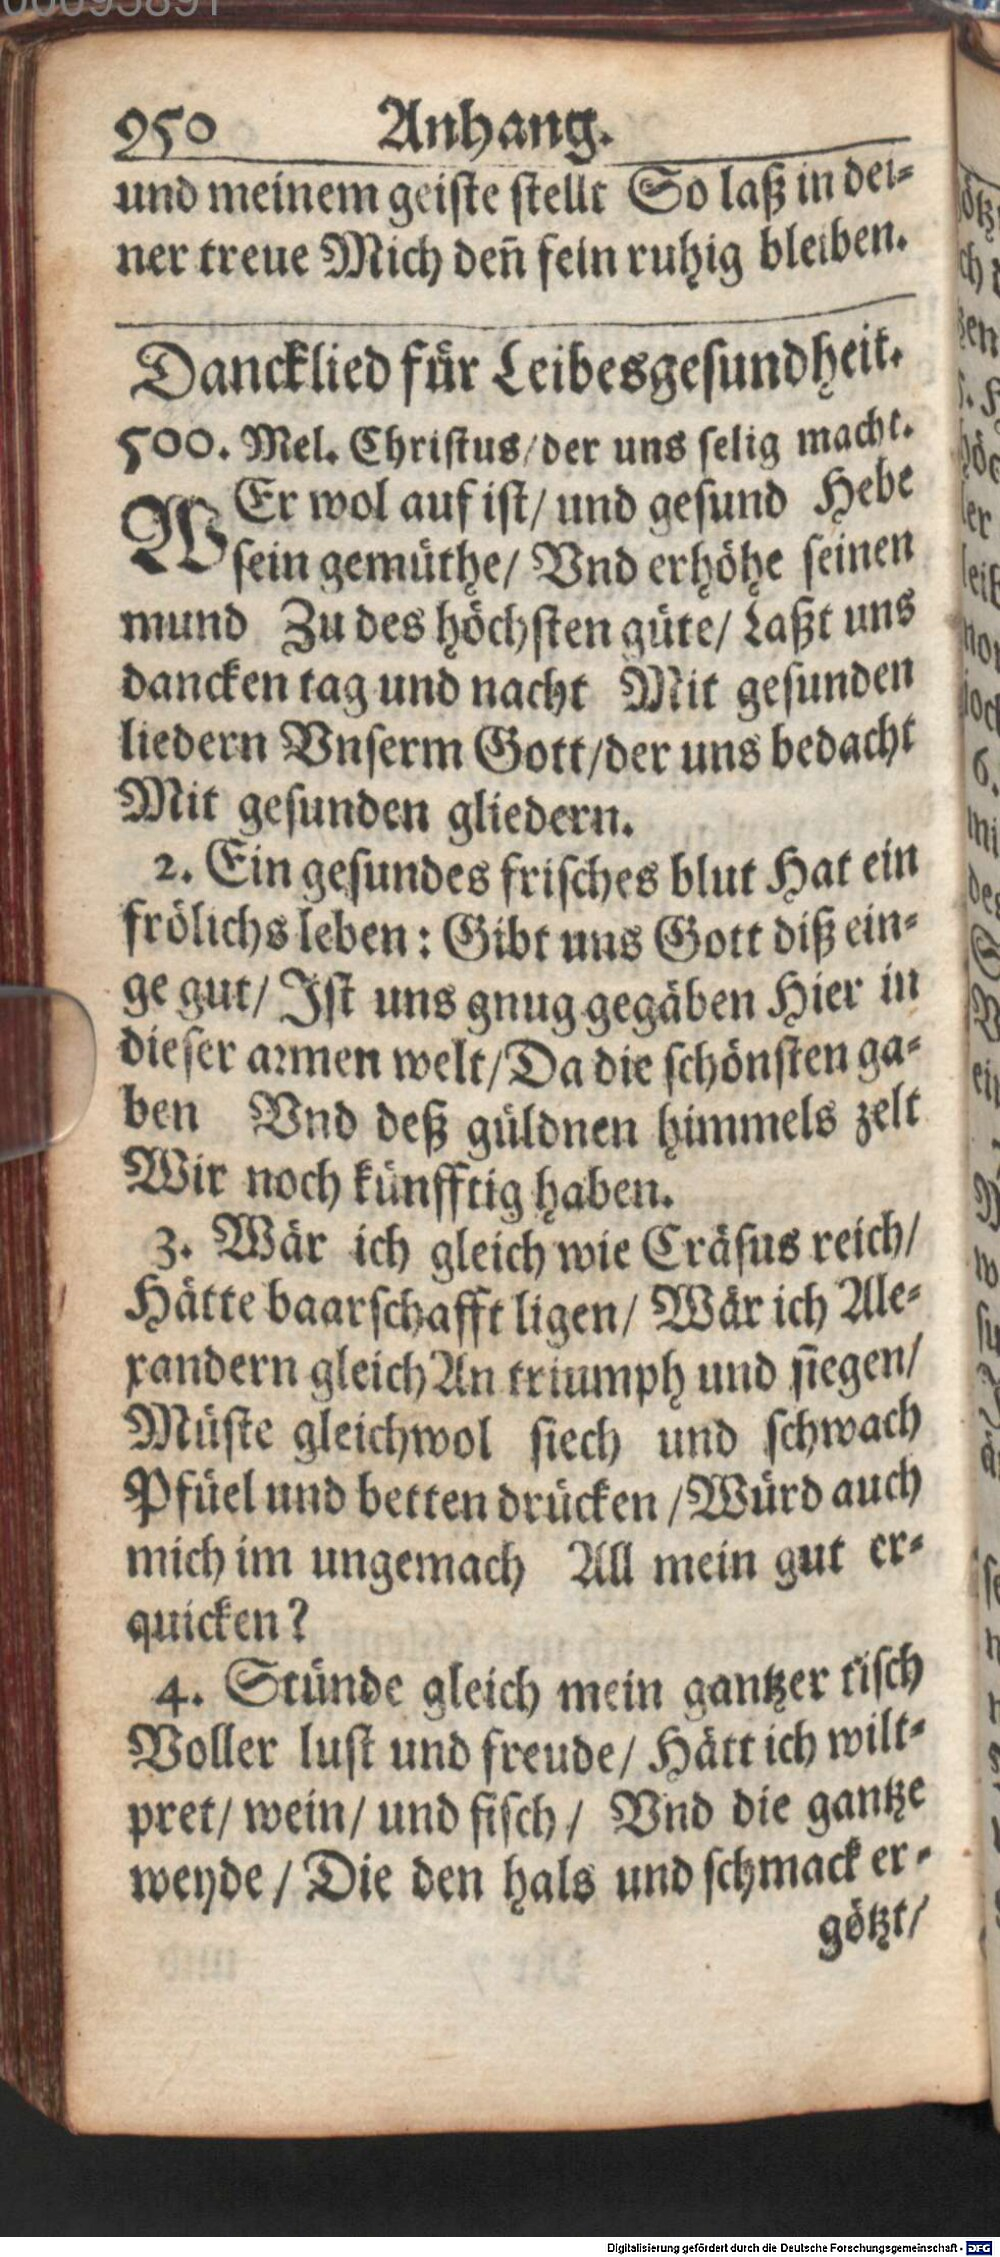 950 Anhang.
und meinem geiste stellt So laß in dei-
ner treue Mich den̄ fein ruhig bleiben.
Dancklied für Leibesgesundheit.
500. Mel. Christus/der uns selig macht.
WEr wol auf ist/ und gesund Hebe
sein gemüthe/ Vnd erhöhe seinen
mund Zu des höchsten güte/ Laßt uns
dancken tag und nacht Mit gesunden
liedern Vnserm Gott/der uns bedacht
Mit gesunden gliedern.
2. Ein gesundes frisches blut Hat ein
frölichs leben: Gibt uns Gott diß ein-
ge gut/ Ist uns gnug gegäben Hier in
dieser armen welt/Da die schönsten ga-
ben Vnd deß güldnen himmels zelt
Wir noch künfftig haben.
3. Wär ich gleich wie Cräsus reich/
Hätte baarschafft ligen/ Wär ich Ale-
xandern gleich An triumph und siegen/
Müste gleichwol siech und schwach
Pfüel und betten drücken /Würd auch
mich im ungemach All mein gut er-
quicken?
4. Stünde gleich mein gantzer tisch
Voller lust und freude/ Hätt ich wilt-
pret/ wein/ und fisch / Vnd die gantze
weyde / Die den hals und schmack er-
götzt/
Digitalisierung gefördert durch die Deutsche Forschungsgemeinschaft - DFG